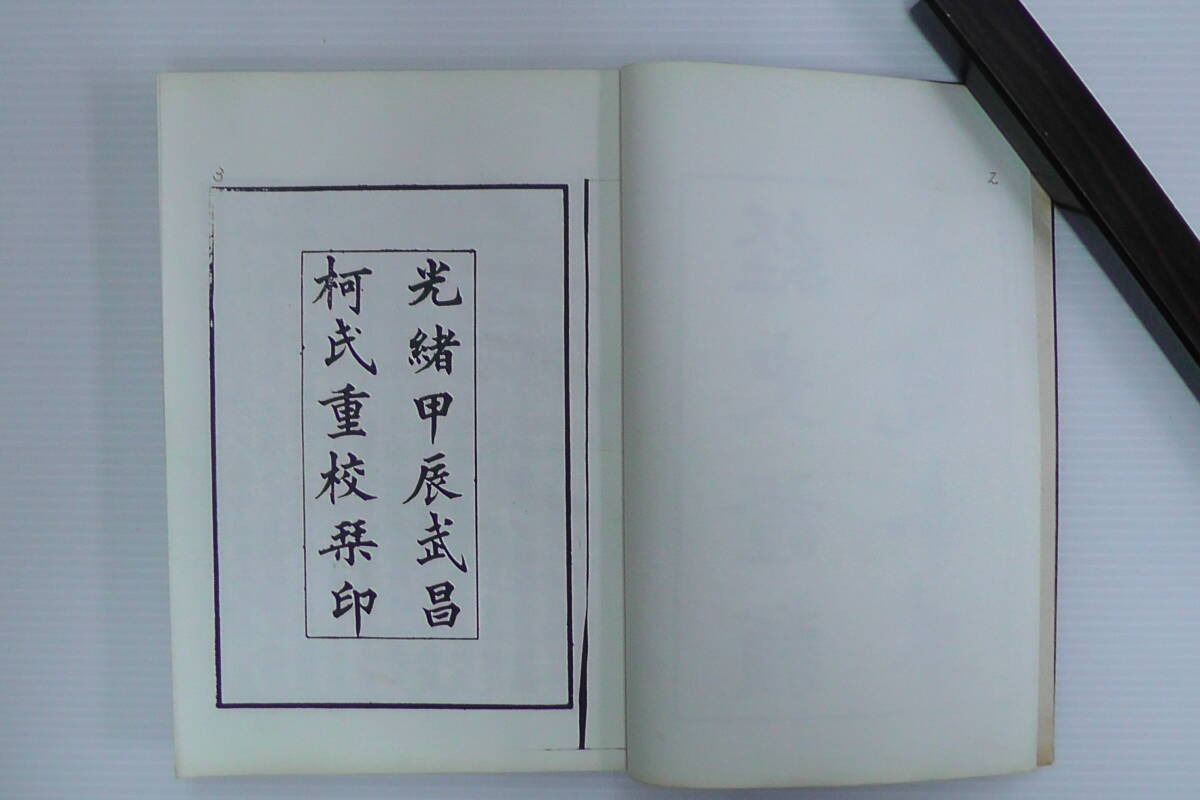 光緒甲辰武昌
柯氏重校栞印
3
2